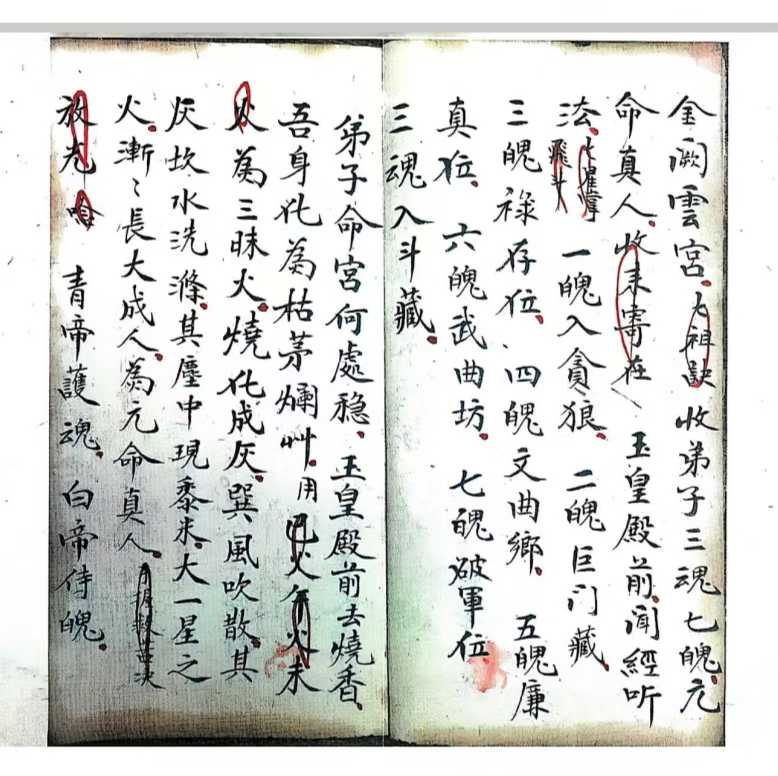 金闕雲宮七祖訣收弟子三魂七魄元
命真人收来寄在玉皇殿前闻經听
法七星掌飛斗一魄入貪狼二魄巨门藏
三魄禄存位四魄文曲鄉五魄廉
真位六魄武曲坊七魄破軍位
三魂入斗藏
弟子命宮何處稳玉皇殿前去燒香
吾身化為枯茅爛艸用火年火未
為三昧火燒化成灰巽風吹散其
灰坎水洗滌其塵中現黍米大一星之
火漸〻長大成人為元命真人
放光青帝護魂白帝侍魄